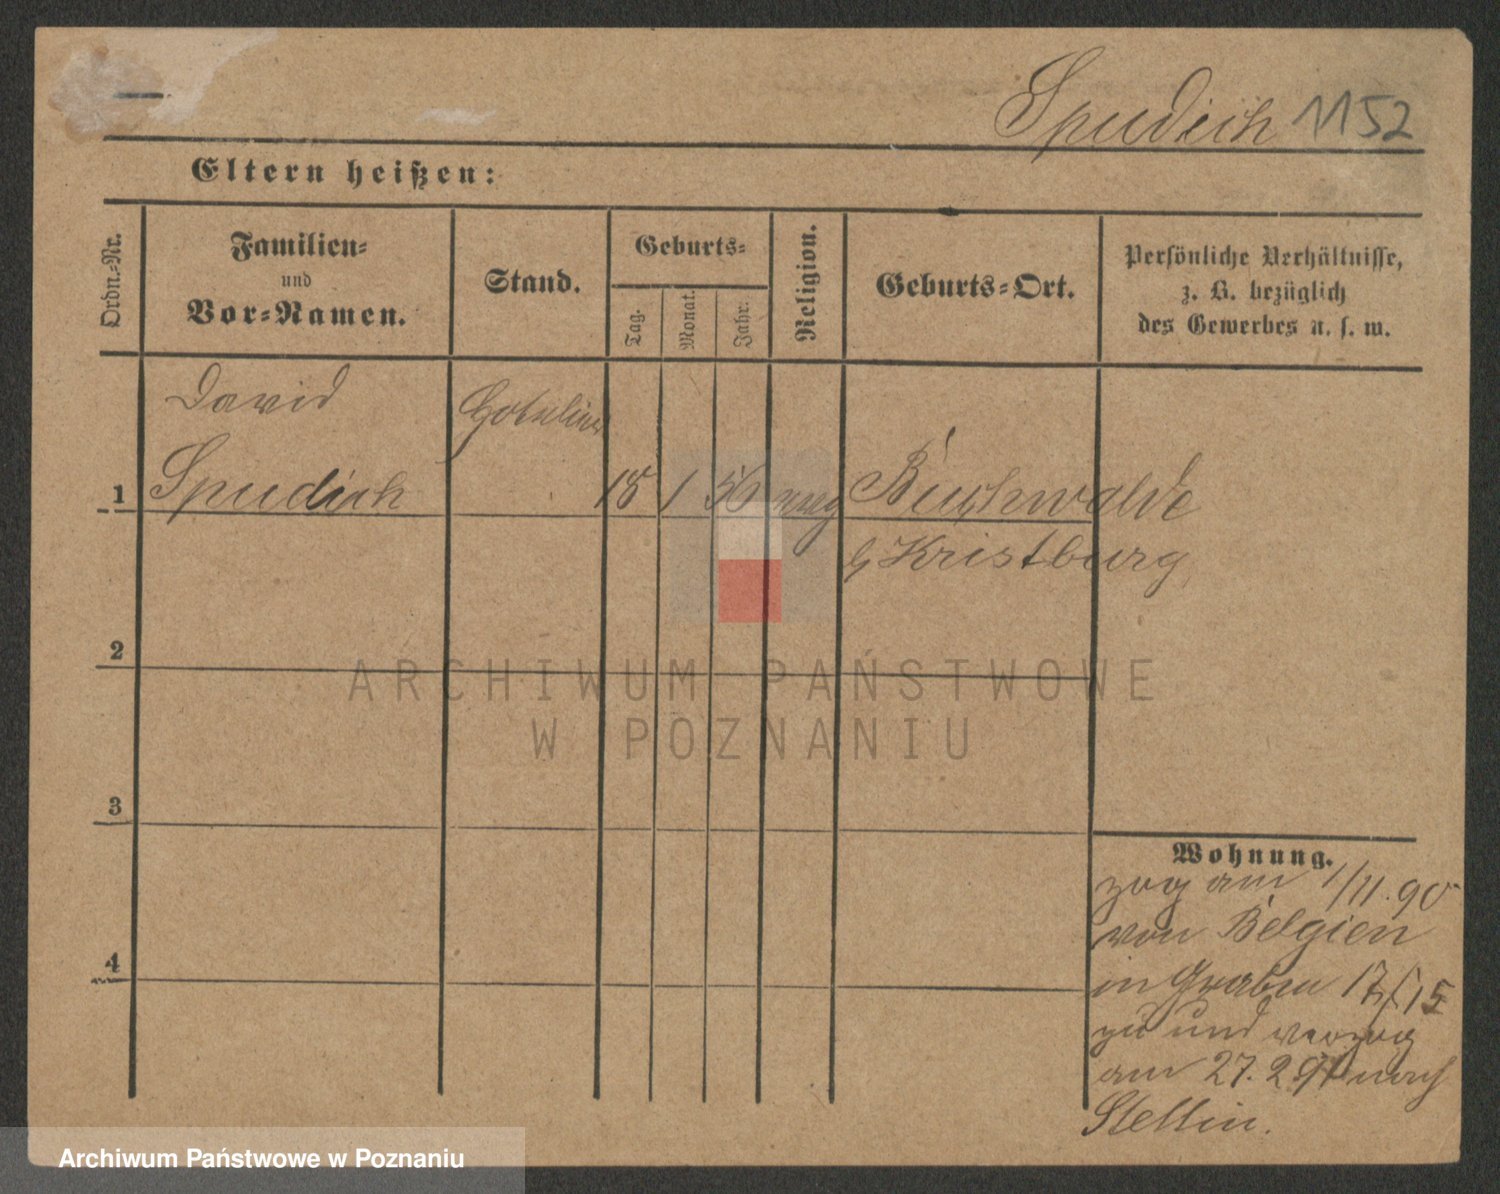 Spudich 1152
Eltern heißen:
Ordn.-Nr.
Familien-
und
Vor-Namen.
Stand.
Geburts-
Tag.
Monat.
Jahr.
Religion.
Geburts-Ort.
Persönliche Verhältnisse,
z. B. bezüglich
des Gewerbes u. s. w.
David
Spudich
1
18 1 50
Buchwalde
b/Kristburg
2
3
4
Wohnung.
zog am 1/11. 90
von Belgien
in Graben
zu und verzog
am 27. 2. 91 nach
Stettin.
ARCHIWUM PAŃSTWOWE
W POZNANIU
Archiwum Państwowe w Poznaniu